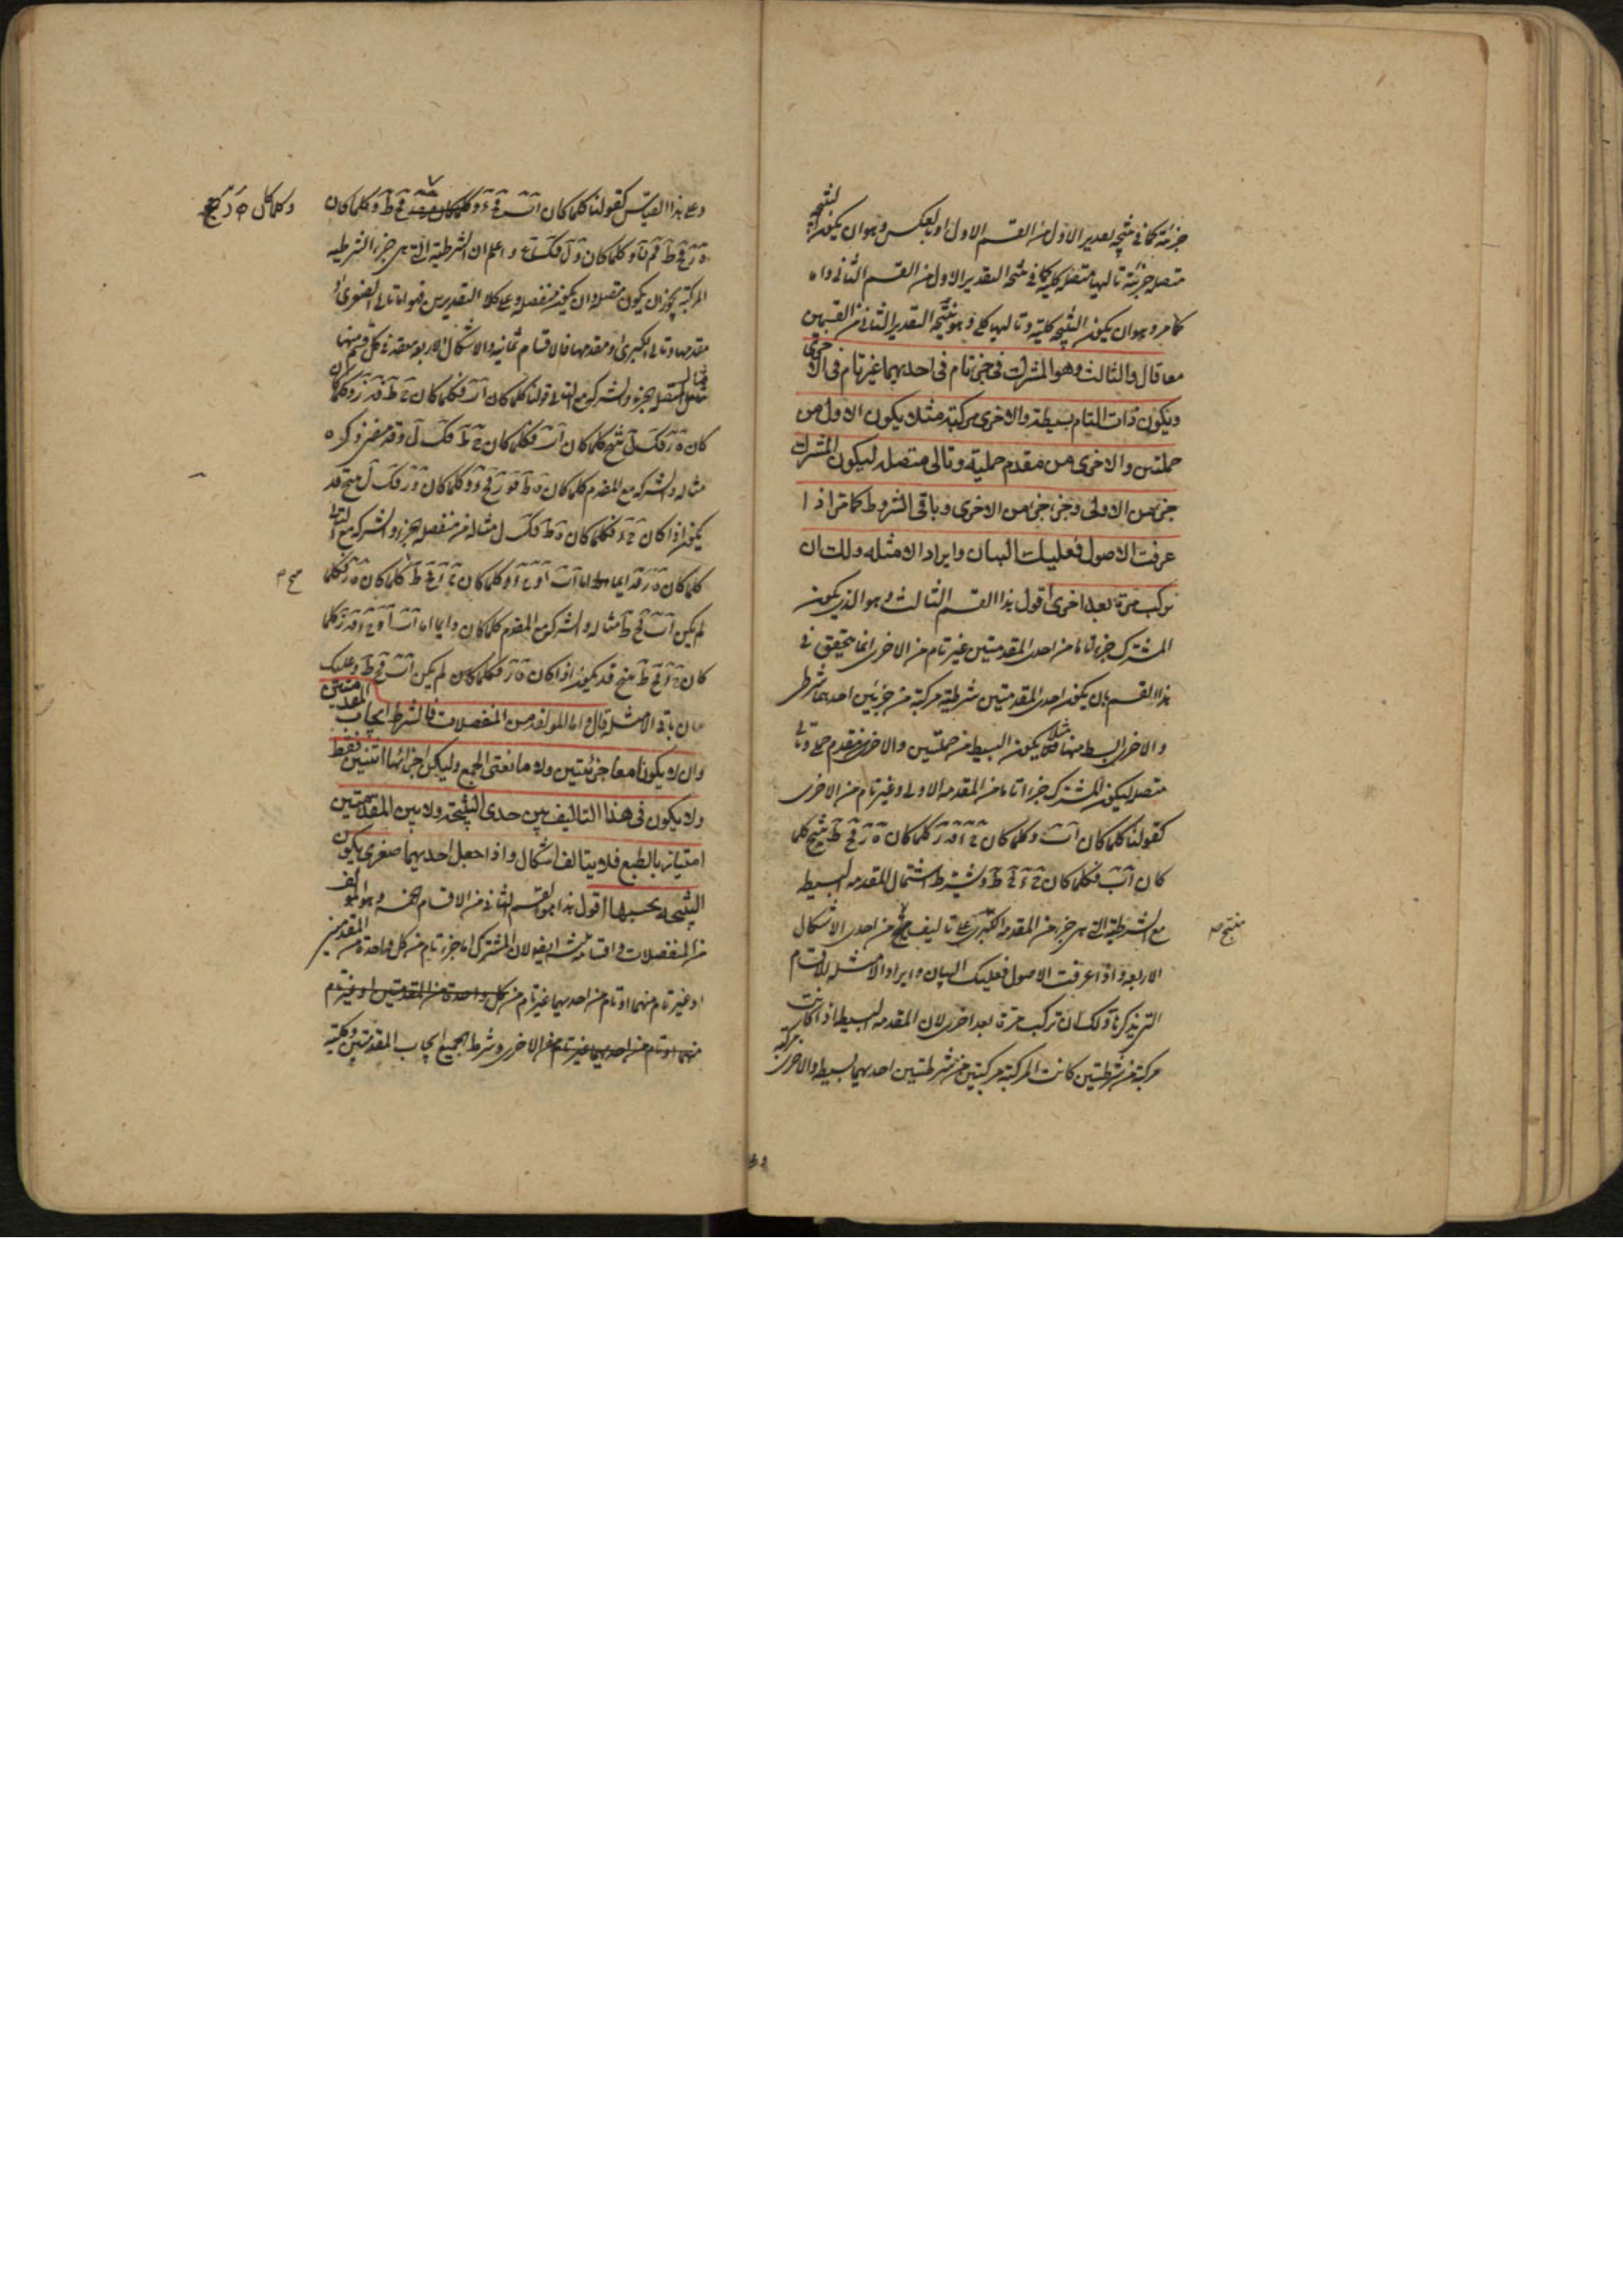 جزئية كما في نتيجة التقدير الاول من القسم الاول او بالعكس وهو ان يكون النتيجة
متصلة جزئية تاليها متصلة كلية كما في نتيجة التقدير الاول من القسم الثاني واه
كما مر وهو ان يكون النتيجة كلية وتاليها كلي وهو نتيجة التقدير الثاني من القسمين
معا قال والثالث وهو المشترك في جزء تام في احديهما غير تام في الاخرى
ويكون ذات التام بسيطة والاخرى مركبة مثلا يكون الاولى من
حمليتين والاخرى من مقدم حملية وتالي متصل ليكون المشترك
جزء من الاولى وجزء جزء من الاخرى وباقي الشروط كما مر اذا
عرفت الاصول فعليك البيان وايراد الامثلة ولك ان
تركب مرة بعد اخرى اقول هذا القسم الثالث وهو الذي يكون
المشترك جزءا تاما من احدى المقدمتين غير تام من الاخرى انما يتحقق في
هذا القسم بان يكون احدى المقدمتين شرطية مركبة من جزئين احدهما شرطي
والاخرى بسيط منهما مثلا يكون البسيط من حمليتين والاخرى من مقدم حملي وتالي
متصل ليكون المشترك جزءا تاما من المقدمة الاولى وغير تام من الاخرى
كقولنا كلما كان اب وكلما كان ج د فه ز كلما كان ه ز فح ط ينتج كلما
كان اب فكلما كان ج د فح ط ويشترط اشتمال المقدمة البسيطة
مع الشرطية التي هي جزء من المقدمة الكبرى على تاليف منتج من احدى الاشكال
منتج صح
الاربعة واذا عرفت الاصول فعليك البيان وايراد الامثلة للاقسام
التي ذكرنا ولك ان تركب مرة بعد اخرى لان المقدمة البسيطة اذا كانت
مركبة من شرطيتين كانت المركبة مركبتين من شرطيتين احديهما بسيطة والاخرى مركبة
وعلى هذا القياس كقولنا كلما كان اب فج د وكلما كان فح ط وكلما كان
وكلما كان ه ز فح
ه ز فح ط فم ن وكلما كان ول فك ع واعلم ان الشرطية التي هي جزء الشرطية
المركبة يجوز ان يكون متصلة وان يكون منفصلة وعلى كلا التقديرين فهو اما تالي الصغرى او
مقدمها وتالي الكبرى او مقدمها فالاقسام ثمانية والاشكال الاربعة منعقدة في كل قسم منها
مثال المتصل الجزء والشركة مع التالي قولنا كلما كان اب فكلما كان ج ط فه ز وكلما
كان ه ز فك ل ينتج كلما كان اب فكلما كان ج ط فك ل وقد مضى ذكره
مثاله والشركة مع المقدم كلما كان ه ط فه ز فج د وكلما كان ه ز فك ل ينتج قد
يكون اذا كان ج د فكلما كان ه ط فك ل مثاله من منفصلة الجزء والشركة مع التالي
كلما كان ه ز فدايما اما اب او ج د وكلما كان ج د فح ط كلما كان ه ز فكلما
لم يكن اب فح ط مثاله والشركة مع المقدم كلما كان دايما اما اب او ج د فه ز وكلما
كان ج د فح ط ينتج قد يكون اذا كان ه ز فكلما كان لم يكن اب فح ط وعليك
بيان باقي الامثلة قال واما المؤلفة من المنفصلات فالشرط ايجاب المقدمتين
وان لا يكونا معا جزئيتين ولا مانعتي الجمع وليكن اجزائها اثنتين فقط
ولا يكون في هذا التاليف بين حدي النتيجة ولا بين المقدمتين
امتياز بالطبع فلا يتالف اشكال واذا جعل احديهما صغرى يكون
النتيجة بحسبها اقول هذا هو القسم الثاني من الاقسام الخمسة وهو المؤلف
من المنفصلات واقسامه ثلثة ايضا لان المشترك اما جزء تام من كل واحدة من المقدمتين
او غير تام منهما او تام من احديهما غير تام من كل واحدة من المقدمتين او غير تام
منهما او تام من احديهما غير تام من الاخرى وشرط الجميع ايجاب المقدمتين وكلية